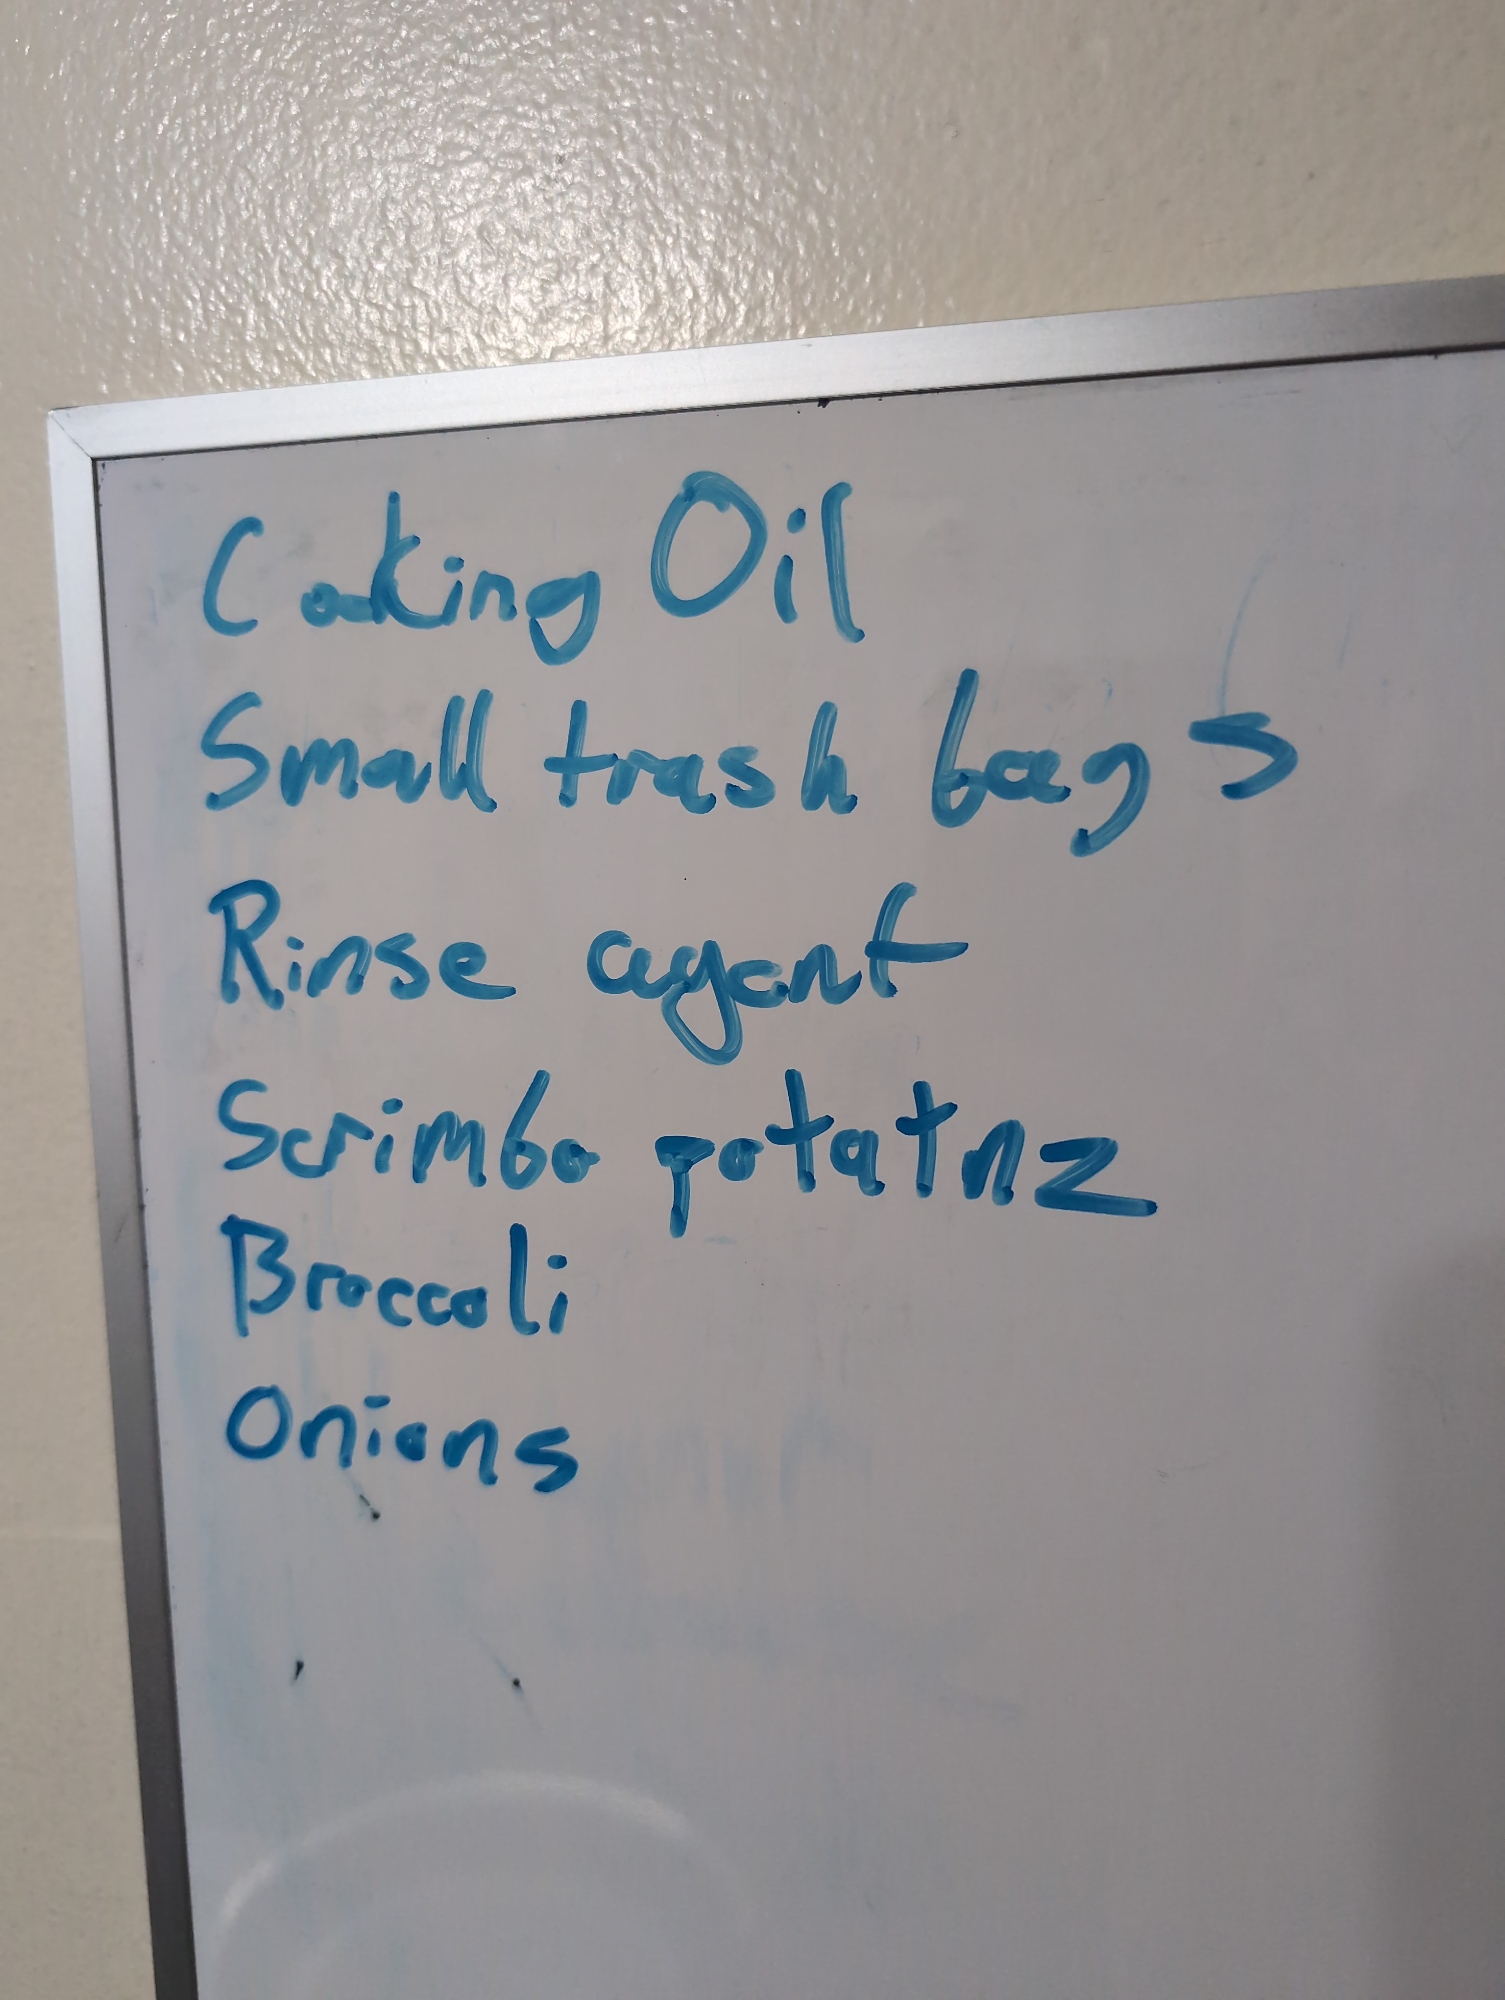 Cooking Oil
Small trash bags
Rinse agent
Scrimbo potatnz
Broccoli
Onions